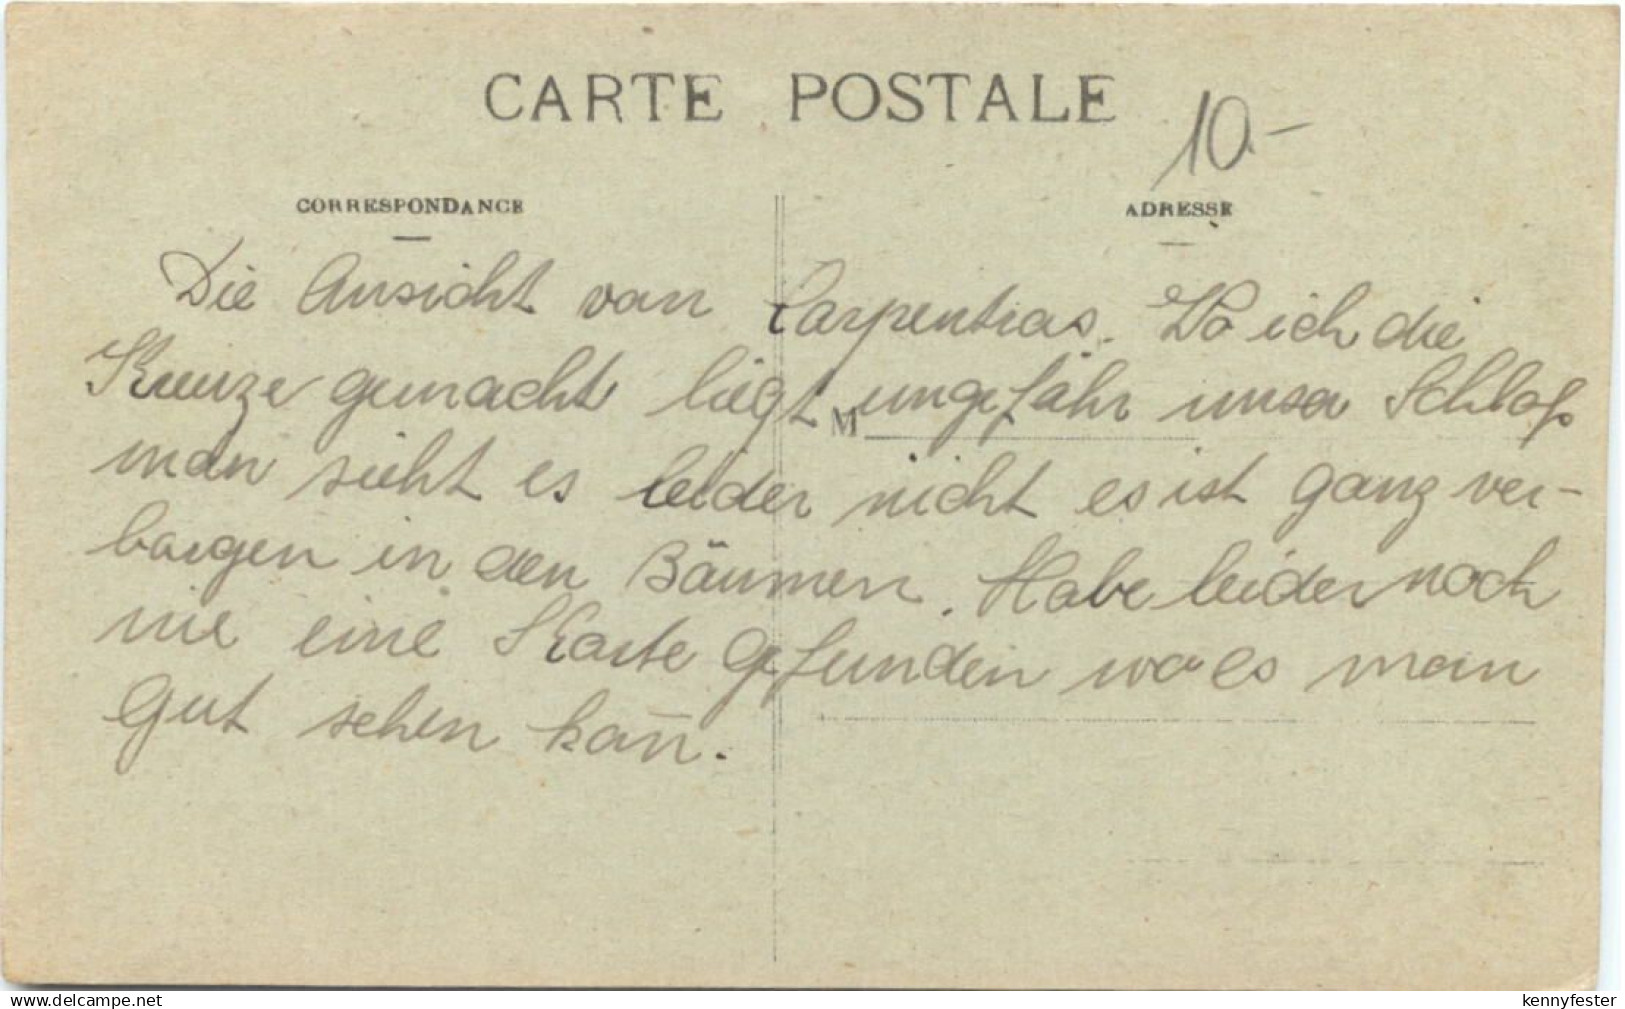 CARTE POSTALE
10.-
CORRESPONDANCE
ADRESSE
Die Ansicht von Carpentras. Wo ich die
Kreuze gemacht liegt ungefähr unser Schloß
M
man sieht es leider nicht es ist ganz ver-
borgen in den Bäumen. Habe leider noch
nie eine Karte gefunden wo es man
gut sehen kan̅.
delcampe.net
kennyfester